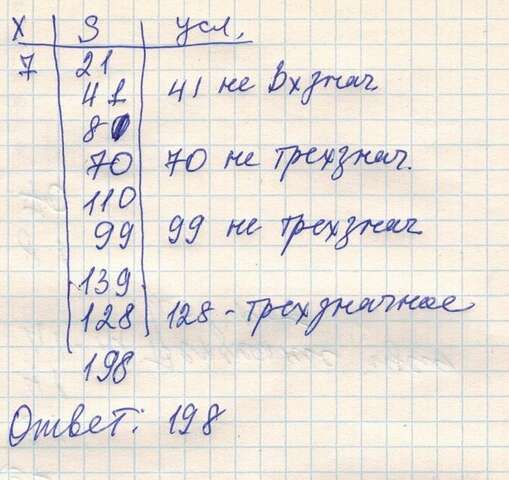 X S усл.
7 21
41 41 не 3хзнач
80
70 70 не трехзнач.
110
99 99 не трехзнач
139
128 128 - трехзначное
198
Ответ: 198